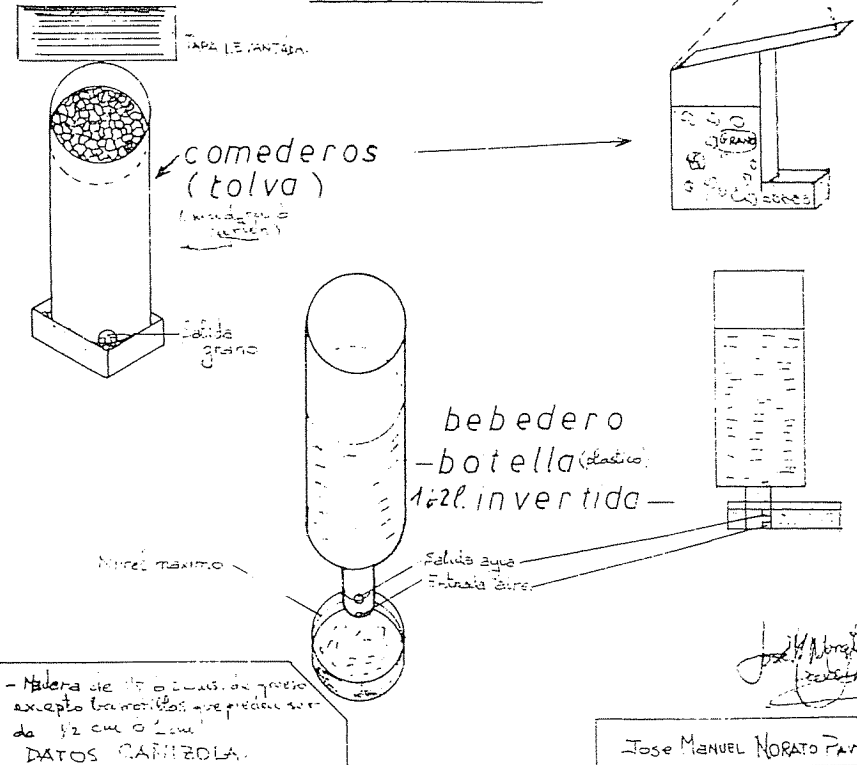 TAPA LEVANTADA.
comederos
(tolva)
GRANO
Salida
grano
bebedero
-botella (plastico)
1ó2l. invertida-
Nivel maximo
Salida agua
Entrada aire
- Madera de de grueso
excepto barrotillos que pueden ser
de 1/2 cm ó
DATOS CAÑIZOLA.
José M Norato
Jose MANUEL NORATO PAV